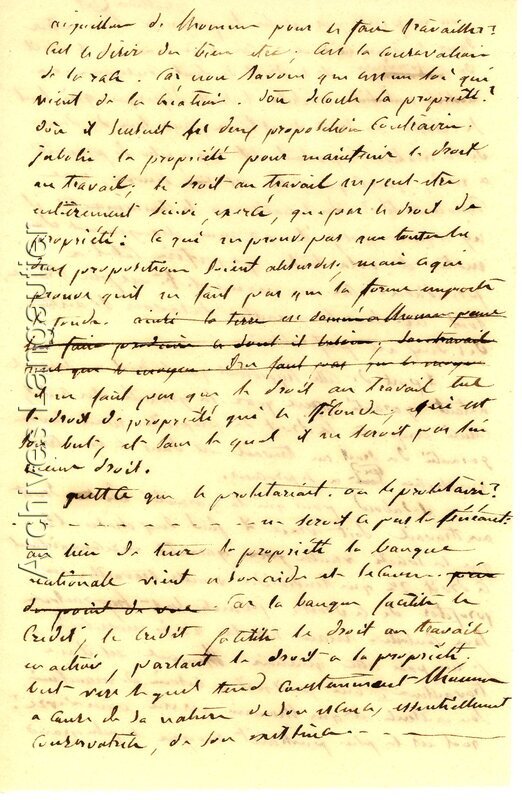 aiguillon de l'homme pour le faire travailler?
C'est le désir du bien etre; c'est la conservation
de la race. Car nous savons que c'est un loi qui
vient de la création. d'où découle la propriété?
d'où il s'ensuit deux proposition contraire.
j'abolis la propriété pour maintenir le droit
au travail; le droit au travail ne peut-etre
entièrement exercé, que par le droit de
propriété: Ce qui ne prouve pas que toutes les
deux propositions soient absurdes, mais ce qui
prouve qu'il ne faut pas que la forme emporte
le fonds. ainsi la terre est donnée a l'homme pour
lui faire produire ce dont il besoin; son travail
n'est que le moyen. Il ne faut pas que le moyen
il ne faut pas que le droit au travail tue
le droit de propriété qui le féconde, qui est
son but, et sans le quel il ne seroit pas lui
meme droit.
qu'est ce que le prolétariat. ou le prolétaire?
- - - - - - - ne seroit ce pas le
au lieu de tuer la propriété la banque
nationale vient a son aide et
du point de vue. Car la banque facilite le
Crédit, le crédit facilite le droit au travail
partant le droit a la propriété.
but vers lequel tend constamment l'homme
a cause de sa nature essentiellement
conservatrice, de son existence
Archives Lansautier